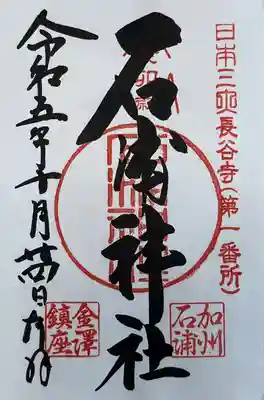 日本三所長谷寺(第一番所)
石浦神社
加州
石浦
令和五年十月廿四日
金澤
鎮座